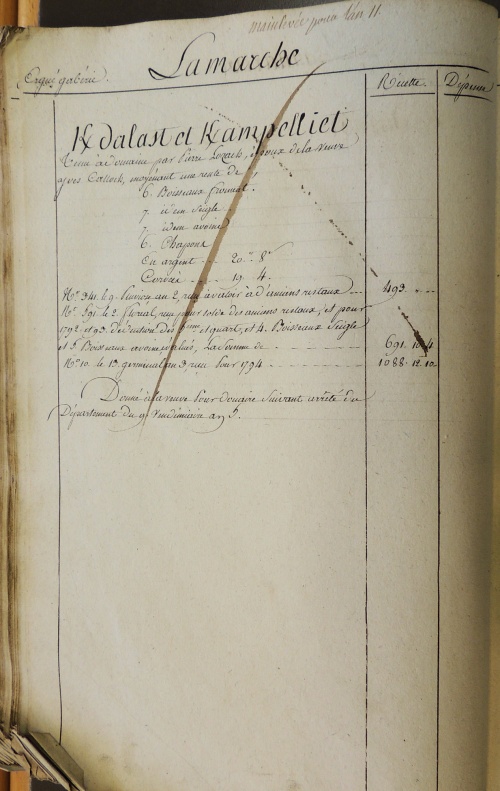 mainlevée pour l'an 11.
Lamarche
Ergué gabéric.
Recette
Dépense
K/dalast et K/ampelliet
Tenue à domaine par Pierre Lozach, époux de la veuve
yves Calloch, moyénant une rente de
6. Boisseaux froment.
7. idem Seigle
7. idem avoine
6. Chapons
En argent ... 20.# 8.s
Corvée ... 19. 4.
N.º 341. le 9. Pluviose an 2, reçu à valoir à d'anciens restaux ... 493. " "
N.º 591. le 2. floréal, reçu pour solde des anciens restaux, et pour
1792. et 93. déduction des et quart, et 4. Boisseaux Seigle
et 5 Boisseaux avoine La Somme de ... 691. 10. 4
N.º 10. le 13. germinal an 3 reçu pour 1794 ... 1088. 12. 10
Donné à la veuve pour Douaire suivant arrêté du
Département du 9. Vendémiaire an 5.